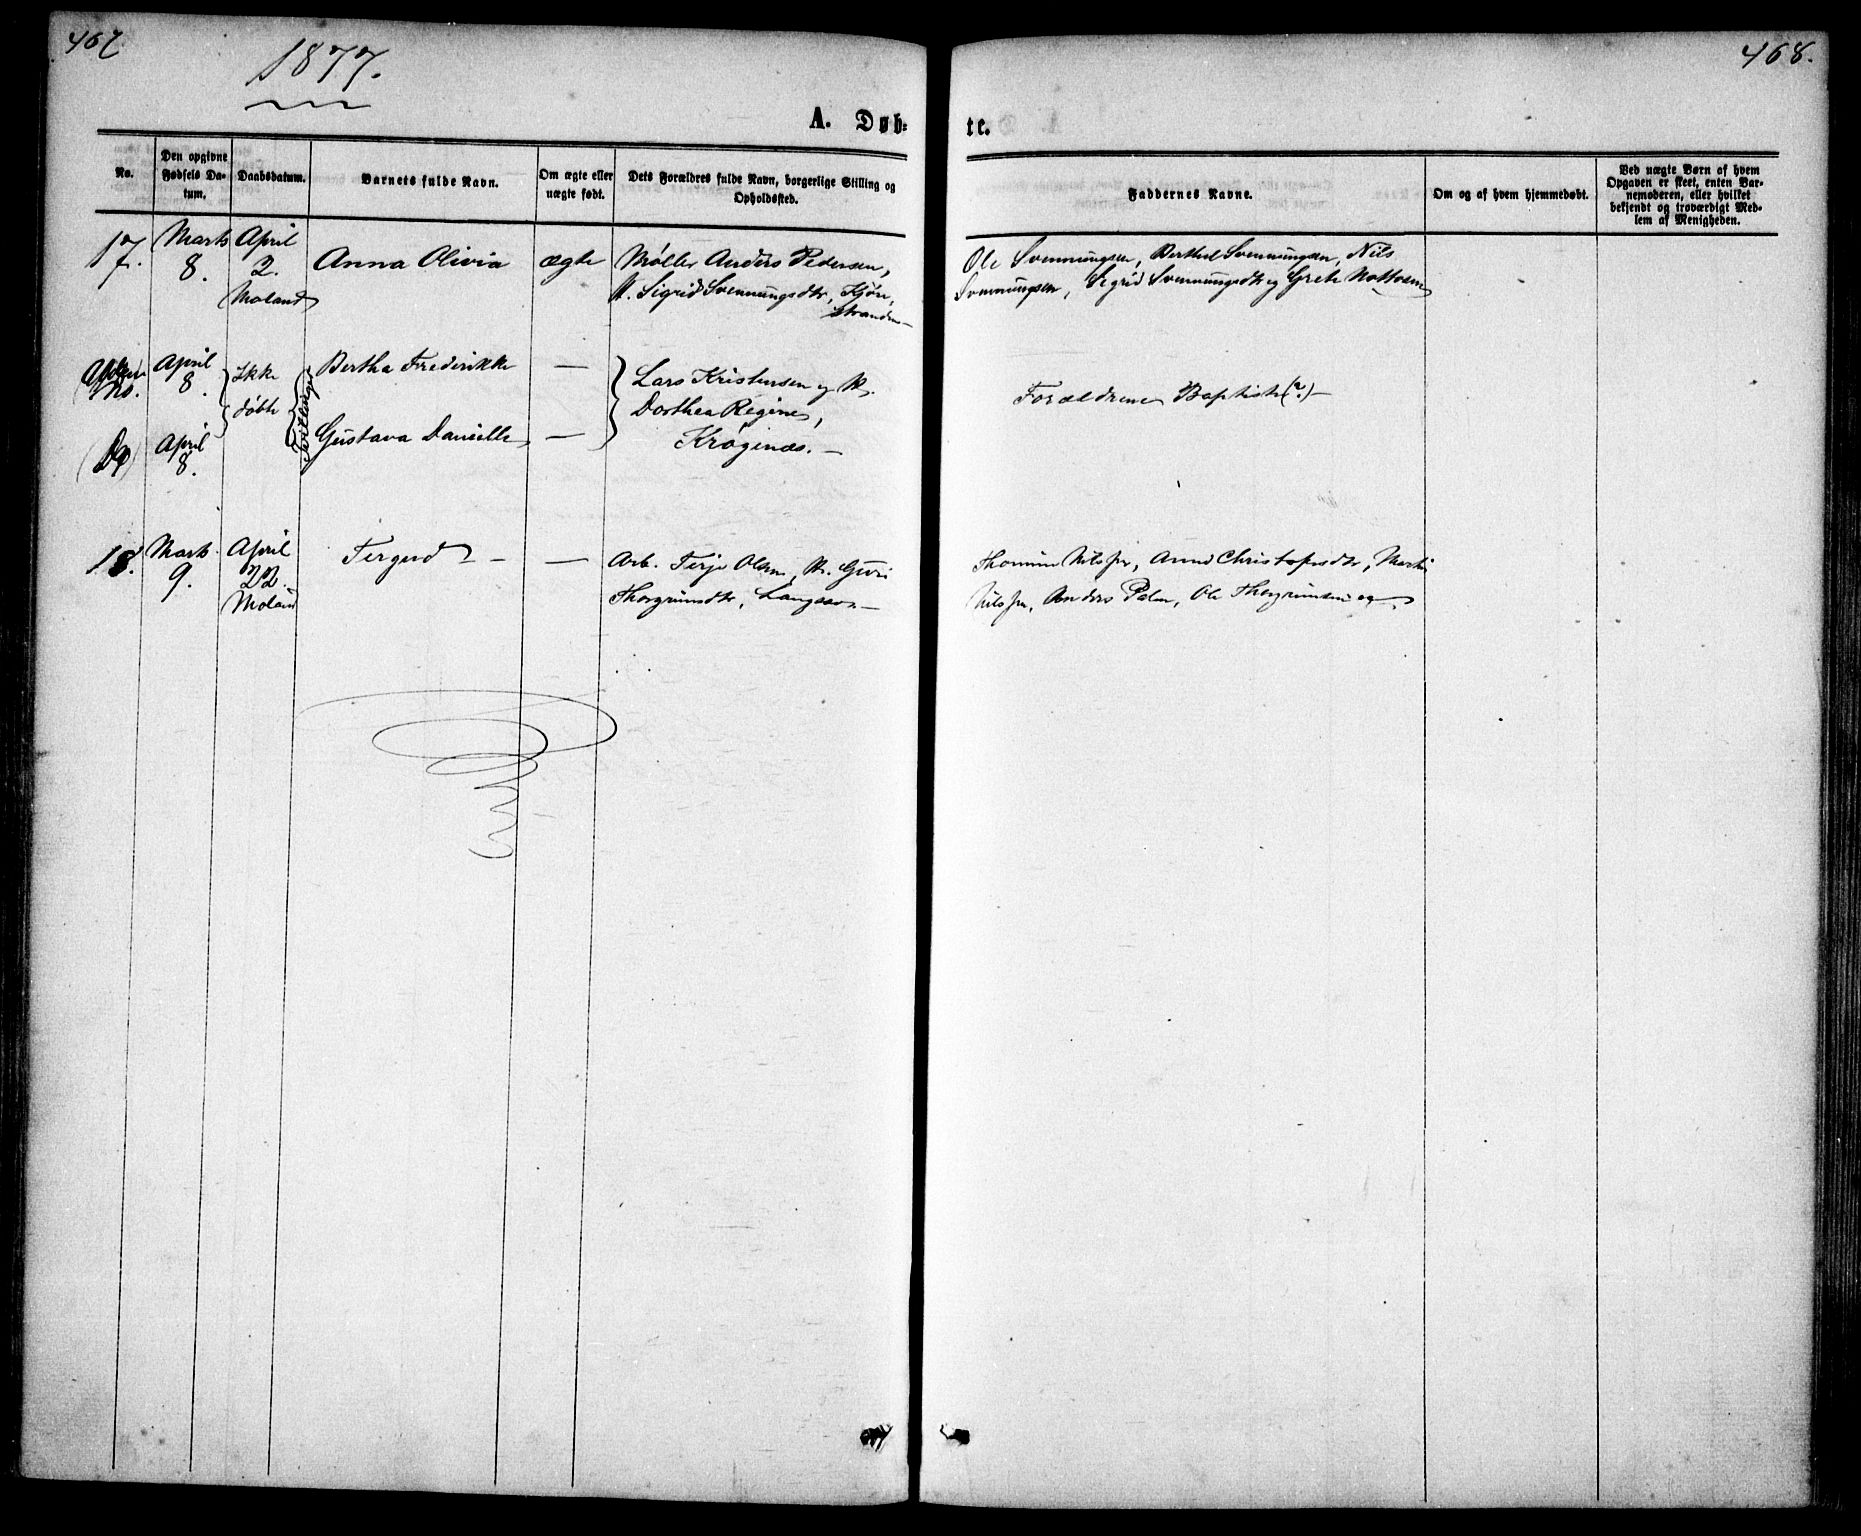 467
1877.
468.
A. Døb-
te.
No.
Den opgivne
Fødsels Da-
tum.
Daabsdatum.
Barnets fulde Navn.
Om ægte eller
uægte født.
Dets Forældres fulde Navn, borgerlige Stilling og
Opholdssted.
Faddernes Navne.
Om og af hvem hjemmedøbt.
Ved uægte Børn af hvem
Opgaven er skeet, enten Bar-
nemoderen, eller hvilket
bekjendt og troværdigt Med-
lem af Menigheden.
17.
Marts
8.
April
2.
Moland
Anna Olivia
ægte
Møller Anders Pedersen,
H. Sigrid Svennungsdtr,
stranden
Ole Svennungsen, Berthel Svennungsen, Nils
Svennungsen, Sigrid Svennungsdtr og Grete
No.
April
8.
Ikke
døbte
Tvillinger
Bertha Frederikke
—
Lars Kristensen og H.
Dorthea Regine,
Krøgenæs. —
Forældrene Baptister (?) —
April
8.
Gustava Danielle
—
18.
Marts
9.
April
22.
Moland
Tergerd —
—
Arb. Terje Olsen, H. Guri
Thorgrimsdtr,
Nilssen, Anne Christofersdtr,
Nilssen, Anders Ole Thorgrimsen og